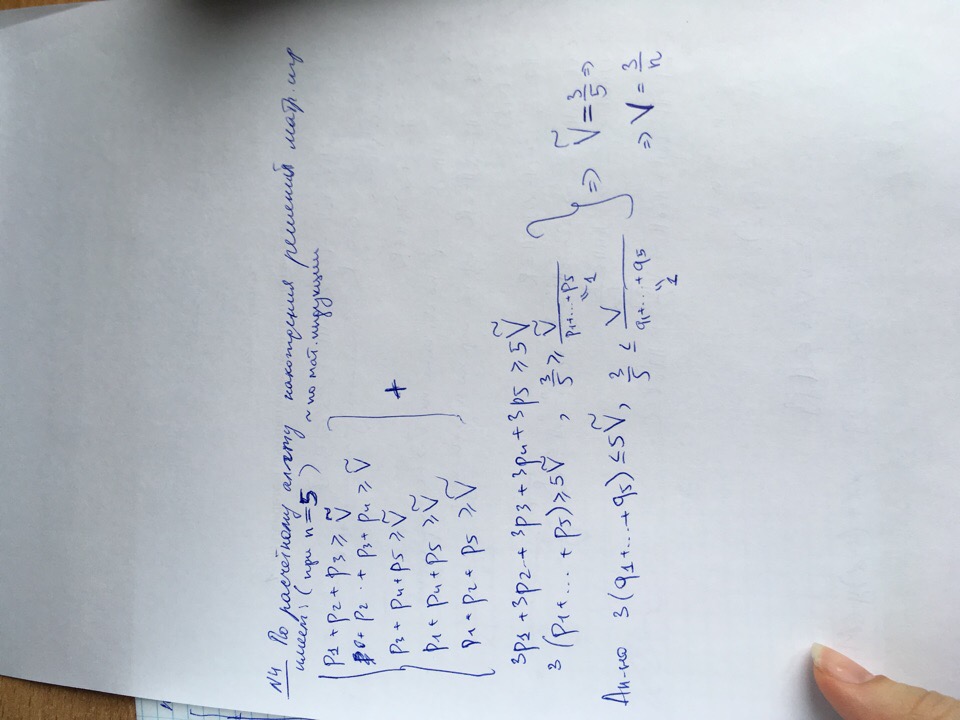 N4 По расчётному алг-му нахождения решений матр. игр
имеем: (при n=5) ~ по мат. индукции
p1 + p2 + p3 ≥ Ṽ
0 + p2 + p3 + p4 ≥ Ṽ
p3 + p4 + p5 ≥ Ṽ
p1 + p4 + p5 ≥ Ṽ
p1 + p2 + p5 ≥ Ṽ
+
3p1 + 3p2 + 3p3 + 3p4 + 3p5 ≥ 5Ṽ
3 (p1 + ... + p5) ≥ 5Ṽ , 3/5 ≥ Ṽ/(p1+...+p5) = 1
Ан-но 3 (q1 + ... + q5) ≤ 5Ṽ, 3/5 ≤ V/(q1+...+q5) = 1
} => Ṽ = 3/5 =>
=> V = 3/n